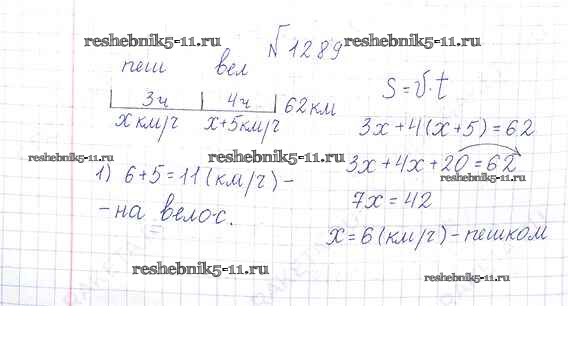 №1289
reshebnik5-11.ru reshebnik5-11.ru
пеш вел
3ч 4ч 62км
x км/ч x+5км/ч
S=v·t
3x+4(x+5)=62
reshebnik5-11.ru reshebnik5-11.ru
3x+4x+20=62
reshebnik5-11.ru
7x=42
x=6(км/ч)-пешком
1) 6+5=11(км/ч)-
-на велос.
reshebnik5-11.ru
reshebnik5-11.ru